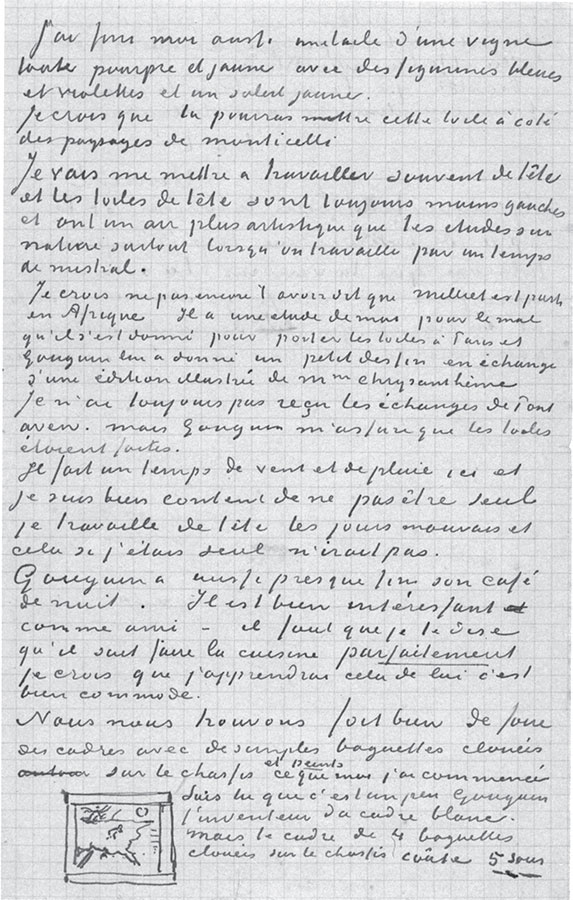 J'ai fini moi aussi une toile d'une vigne
toute pourpre et jaune avec des figurines bleues
et violettes et un soleil jaune.
Je crois que tu pourras mettre cette toile à coté
des paysages de monticelli
Je vais me mettre a travailler souvent de tête
et les toiles de tête sont toujours moins gauches
et ont un air plus artistique que les etudes sur
nature surtout lorsqu'on travaille par un temps
de mistral.
Je crois ne pas encore t'avoir dit que Milliet est parti
en Afrique Il a une etude de moi pour le mal
qu'il s'est donné pour porter les toiles à Paris et
Gauguin lui a donné un petit dessin en échange
d'une édition illustrée de Mme Chrysanthème
Je n'ai toujours pas reçu les échanges de Pont
aven. mais Gauguin m'assure que les toiles
étaient faites.
Il fait un temps de vent et de pluie ici et
je suis bien content de ne pas être seul
je travaille de tête les jours mauvais et
cela si j'étais seul n'irait pas.
Gauguin a aussi presque fini son café
de nuit. Il est bien intéressant
comme ami – il faut que je te dise
qu'il sait faire la cuisine parfaitement
je crois que j'apprendrai cela de lui c'est
bien commode.
Nous nous trouvons fort bien de faire
des cadres avec de simples baguettes clouées
sur le chassis et peints ce que moi j'ai commencé
Sais tu que c'est un peu Gauguin
l'inventeur du cadre blanc.
Mais le cadre de 4 baguettes
clouées sur le chassis coûte 5 sous